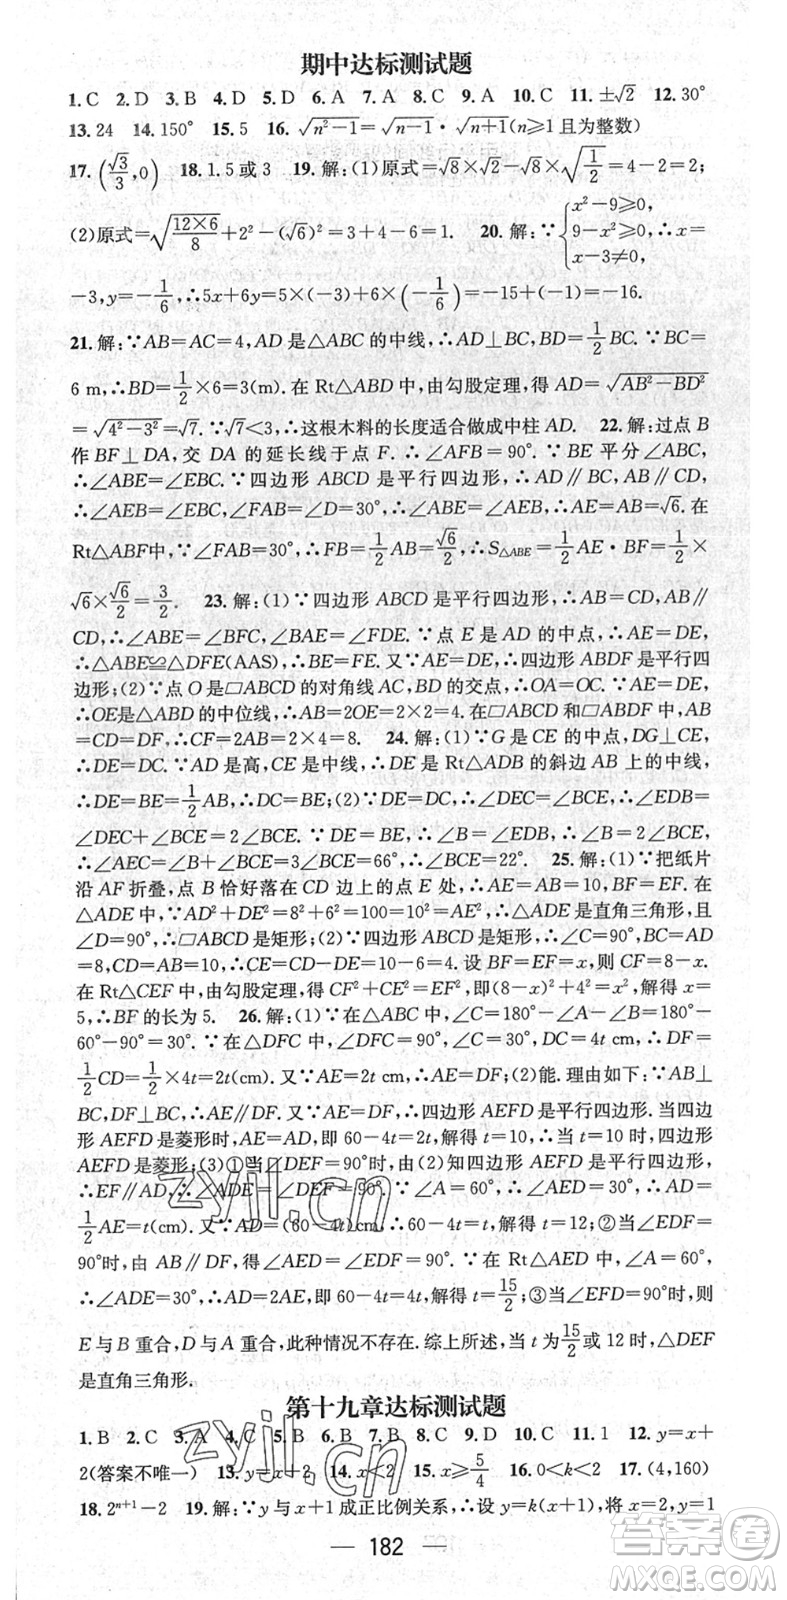 期中达标测试题
1. C 2. D 3. B 4. D 5. D 6. A 7. A 8. C 9. A 10. C 11. ±√2 12. 30°
13. 24 14. 150° 15. 5 16. √(n²-1)=√(n-1)·√(n+1)(n⩾1且为整数)
17. (√3/3,0) 18. 1.5或3 19. 解:(1)原式=√8×√2-√8×√(1/2)=4-2=2;
(2)原式=√(12×6/8)+2²-(√6)²=3+4-6=1. 20. 解:∵{x²-9⩾0, 9-x²⩾0, x-3≠0, ∴x=
-3,y=-1/6,∴5x+6y=5×(-3)+6×(-1/6)=-15+(-1)=-16.
21. 解:∵AB=AC=4,AD是△ABC的中线,∴AD⊥BC,BD=1/2BC.∵BC=
6 m,∴BD=1/2×6=3(m).在Rt△ABD中,由勾股定理,得AD=√(AB²-BD²)
=√(4²-3²)=√7.∵√7<3,∴这根木料的长度适合做成中柱AD. 22. 解:过点B
作BF⊥DA,交DA的延长线于点F.∴∠AFB=90°.∵BE平分∠ABC,
∴∠ABE=∠EBC.∵四边形ABCD是平行四边形,∴AD∥BC,AB∥CD,
∴∠AEB=∠EBC,∠FAB=∠D=30°,∴∠ABE=∠AEB,∴AE=AB=√6.在
Rt△ABF中,∵∠FAB=30°,∴FB=1/2AB=√6/2,∴S△ABE=1/2AE·BF=1/2×
√6×√6/2=3/2. 23. 解:(1)∵四边形ABCD是平行四边形,∴AB=CD,AB∥
CD,∴∠ABE=∠BFC,∠BAE=∠FDE.∵点E是AD的中点,∴AE=DE,
∴△ABE≌△DFE(AAS),∴BE=FE.又∵AE=DE,∴四边形ABDF是平行四
边形;(2)∵点O是□ABCD的对角线AC,BD的交点,∴OA=OC.∵AE=DE,
∴OE是△ABD的中位线,∴AB=2OE=2×2=4.在□ABCD和□ABDF中,AB=
CD=DF,∴CF=2AB=2×4=8. 24. 解:(1)∵G是CE的中点,DG⊥CE,
∴DE=DC.∵AD是高,CE是中线,∴DE是Rt△ADB的斜边AB上的中线,
∴DE=BE=1/2AB,∴DC=BE;(2)∵DE=DC,∴∠DEC=∠BCE,∴∠EDB=
∠DEC+∠BCE=2∠BCE.∵DE=BE,∴∠B=∠EDB,∴∠B=2∠BCE,
∴∠AEC=∠B+∠BCE=3∠BCE=66°,∴∠BCE=22°. 25. 解:(1)∵把纸片
沿AF折叠,点B恰好落在CD边上的点E处,∴AE=AB=10,BF=EF.在
△ADE中,∵AD²+DE²=8²+6²=100=10²=AE²,∴△ADE是直角三角形,且
∠D=90°,∴□ABCD是矩形;(2)∵四边形ABCD是矩形,∴∠C=90°,BC=AD
=8,CD=AB=10,∴CE=CD-DE=10-6=4.设BF=EF=x,则CF=8-x.
在Rt△CEF中,由勾股定理,得CF²+CE²=EF²,即(8-x)²+4²=x²,解得x=
5,∴BF的长为5. 26. 解:(1)∵在△ABC中,∠C=180°-∠A-∠B=180°-
60°-90°=30°.∵在△DFC中,∠DFC=90°,∠C=30°,DC=4t cm,∴DF=
1/2CD=1/2×4t=2t(cm).又∵AE=2t cm,∴AE=DF;(2)能.理由如下:∵AB⊥
BC,DF⊥BC,∴AE∥DF.又∵AE=DF,∴四边形AEFD是平行四边形.当四边
形AEFD是菱形时,AE=AD,即60-4t=2t,解得t=10,∴当t=10时,四边形
AEFD是菱形;(3)①当∠DEF=90°时,由(2)知四边形AEFD是平行四边形,
∴EF∥AD,∴∠ADE=∠DEF=90°.∵∠A=60°,∴∠AED=30°,∴AD=
1/2AE=t(cm).又∵AD=(60-4t)cm,∴60-4t=t,解得t=12;②当∠EDF=
90°时,由AB∥DF,得∠AED=∠EDF=90°.∵在Rt△AED中,∠A=60°,
∴∠ADE=30°,∴AD=2AE,即60-4t=4t,解得t=15/2;③当∠EFD=90°时,则
E与B重合,D与A重合,此种情况不存在.综上所述,当t为15/2或12时,△DEF
是直角三角形.
第十九章达标测试题
1. B 2. C 3. A 4. C 5. B 6. B 7. B 8. C 9. D 10. C 11. 1 12. y=x+
2(答案不唯一) 13. y=x+2 14. x<2 15. x⩾5/4 16. 0<k<2 17. (4,160)
18. 2ⁿ⁺¹-2 19. 解:∵y与x+1成正比例关系,∴设y=k(x+1),将x=2,y=1
182
zyjl.cn
zyjl.cn